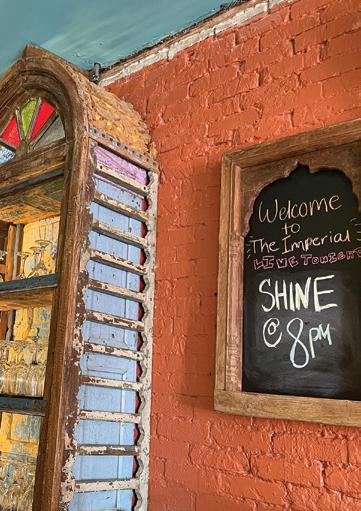 Welcome
to
The Imperial
LIVE TONIGHT
SHINE
@ 8PM